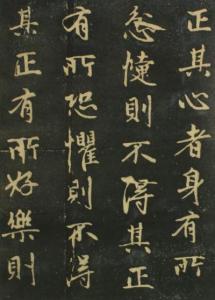 正其心者身有所
忿懥則不得其正
有所恐懼則不得
其正有所好樂則